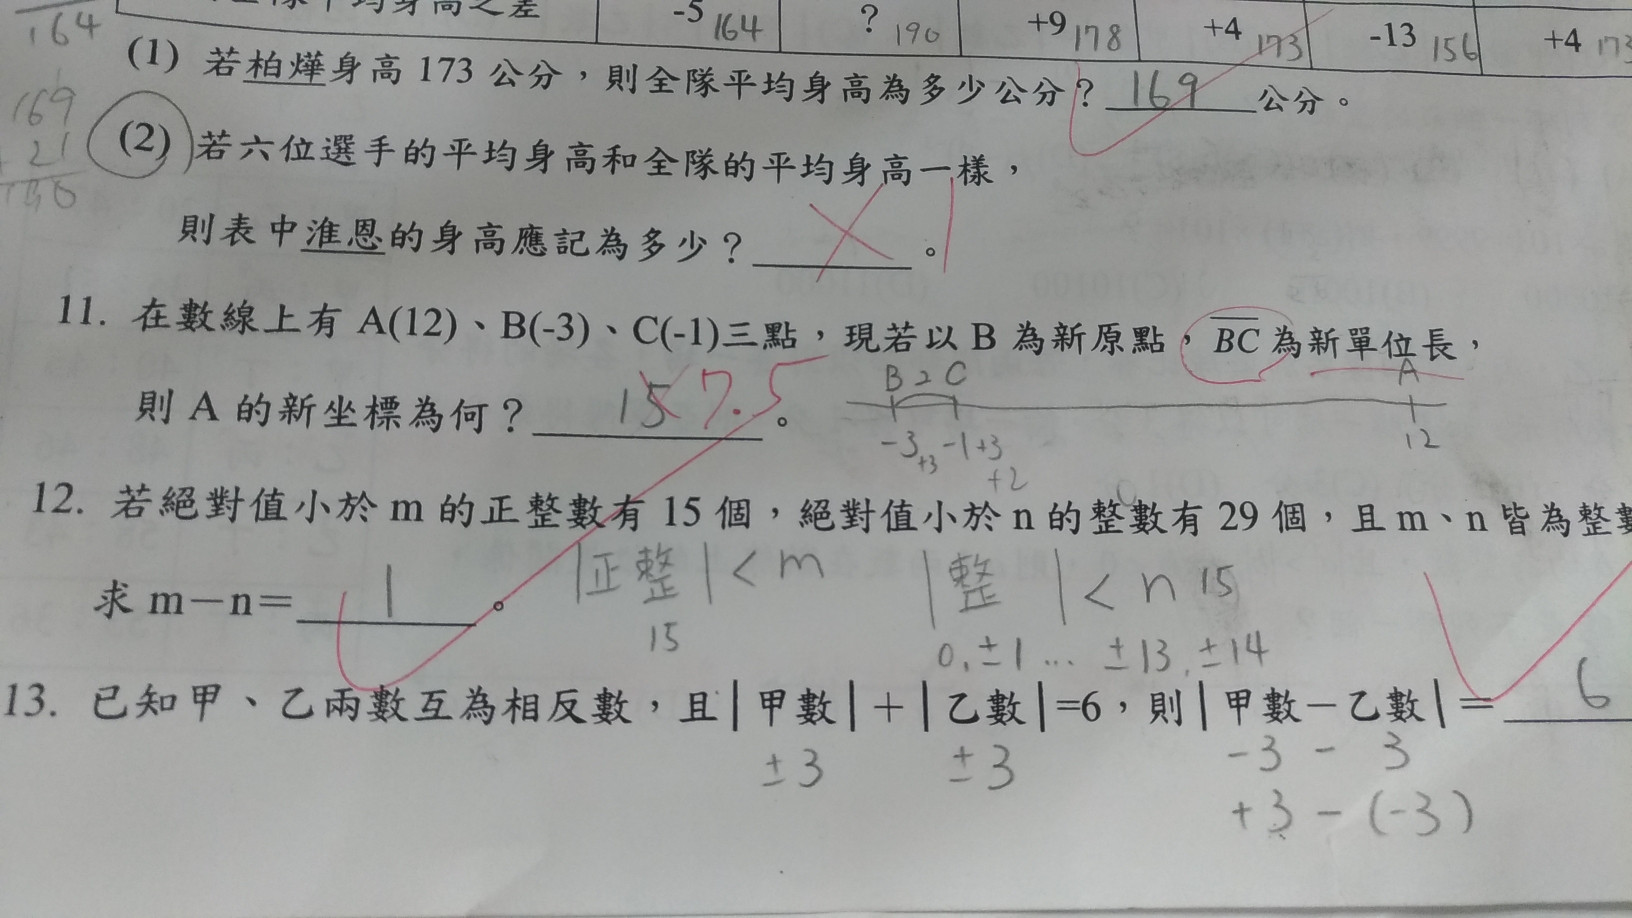 164 平均身高之差 -5 164 ? 190 +9 178 +4 173 -13 156 +4 173
(1) 若柏燁身高 173 公分，則全隊平均身高為多少公分？ 169 公分。
169
21
(2) 若六位選手的平均身高和全隊的平均身高一樣，
則表中淮恩的身高應記為多少？ 。
11. 在數線上有 A(12)、B(-3)、C(-1)三點，現若以 B 為新原點，BC 為新單位長，
B 2 C A
則 A 的新坐標為何？ 15 7.5 。
-3 +3 -1+3 12
+2
12. 若絕對值小於 m 的正整數有 15 個，絕對值小於 n 的整數有 29 個，且 m、n 皆為整數
|正整| < m |整| < n 15
求 m－n＝ 1 。
15 0, ±1 … ±13, ±14
13. 已知甲、乙兩數互為相反數，且｜甲數｜＋｜乙數｜=6，則｜甲數－乙數｜＝ 6
±3 ±3 -3 - 3
+3 - (-3)